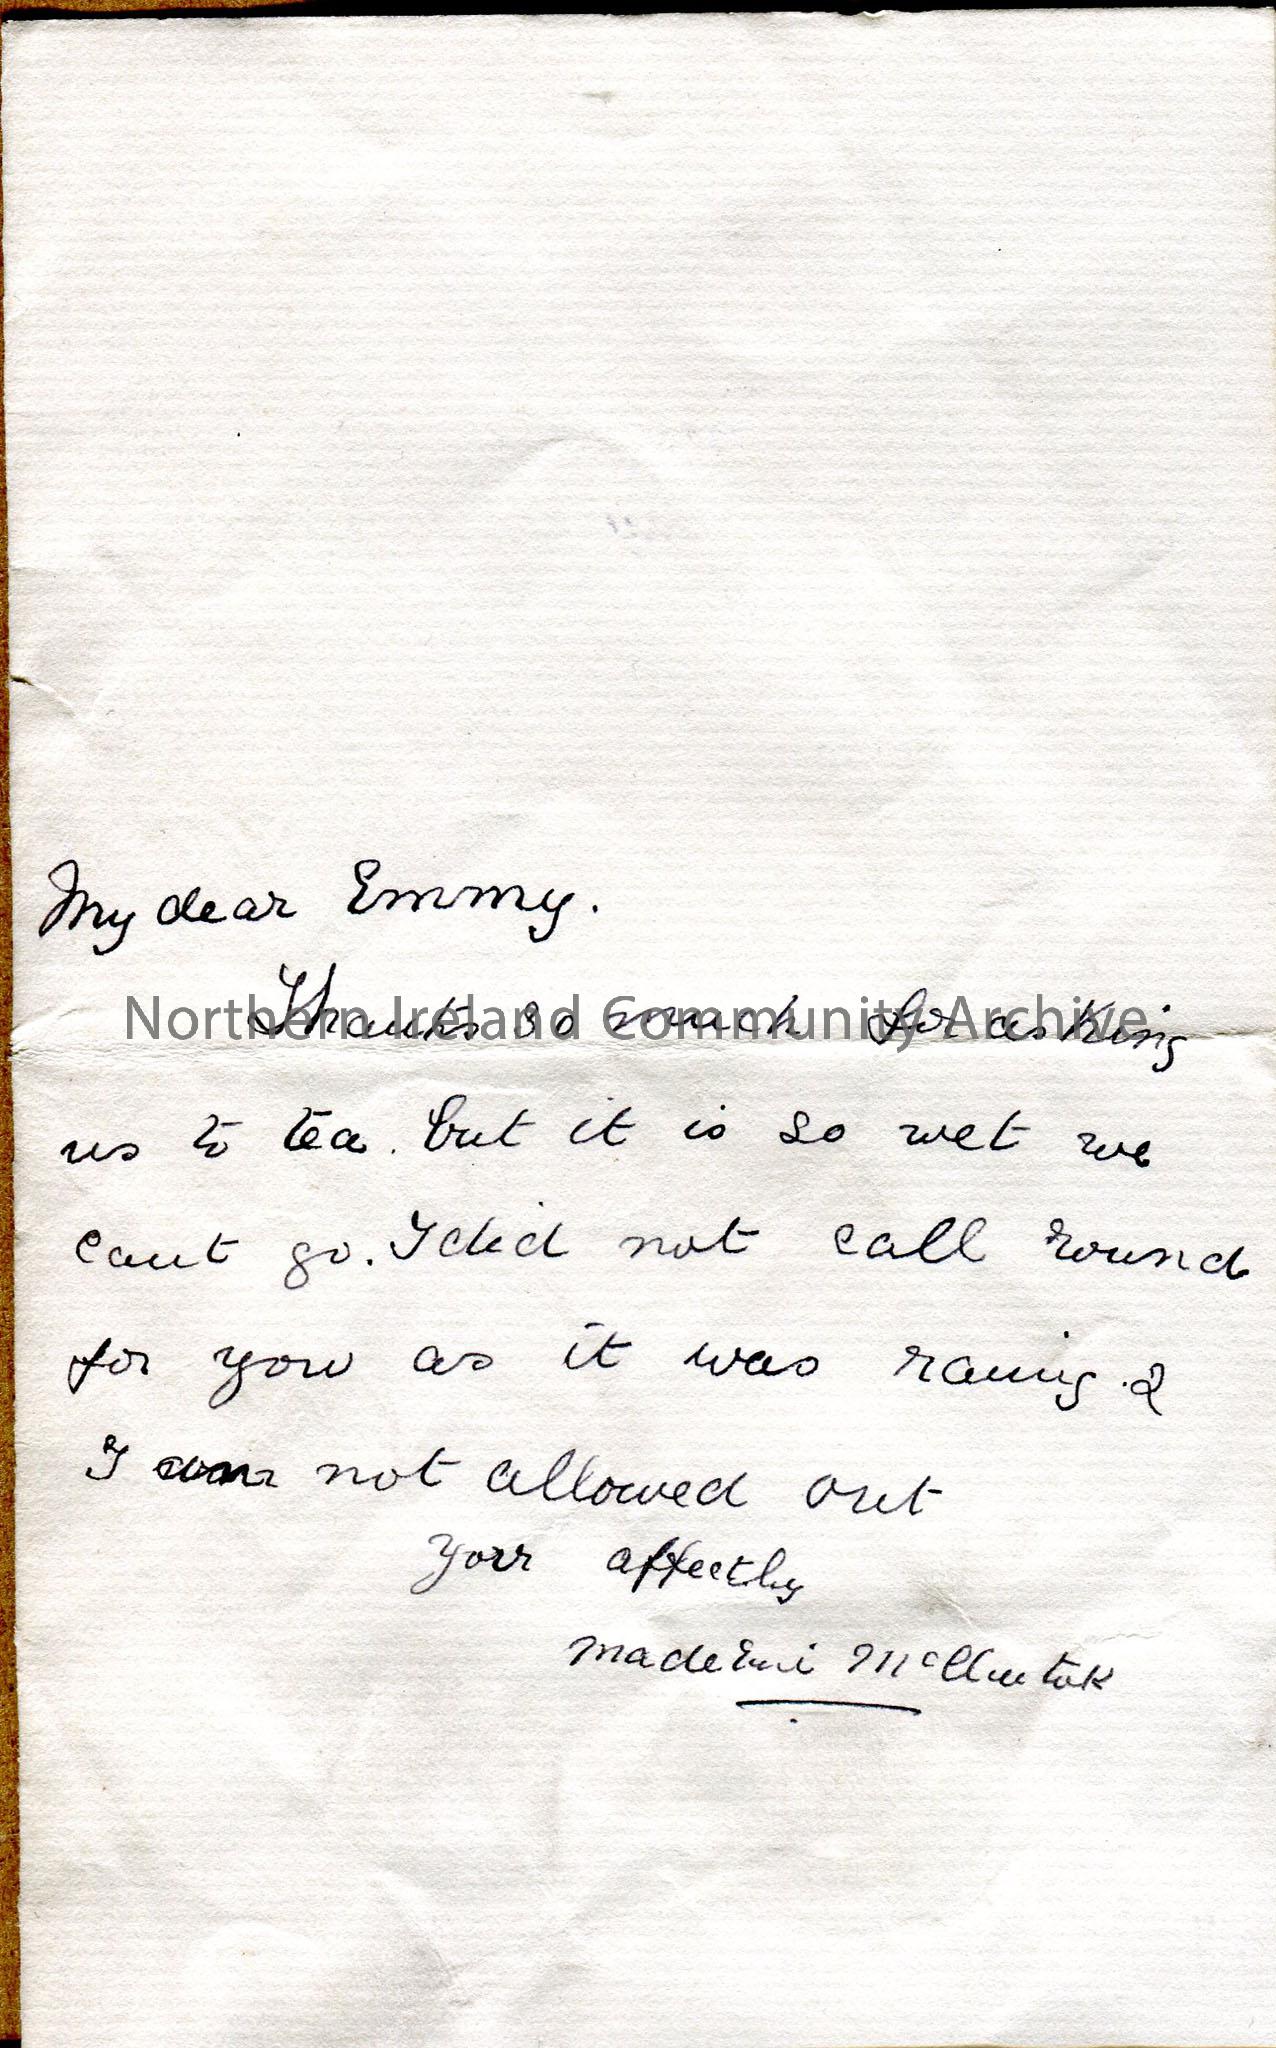 My dear Emmy.
Thanks so much for asking
Northern Ireland Community Archive
us to tea. but it is so wet we
cant go. I did not call round
for you as it was raing. &
I was not allowed out
your affectly
McClintok